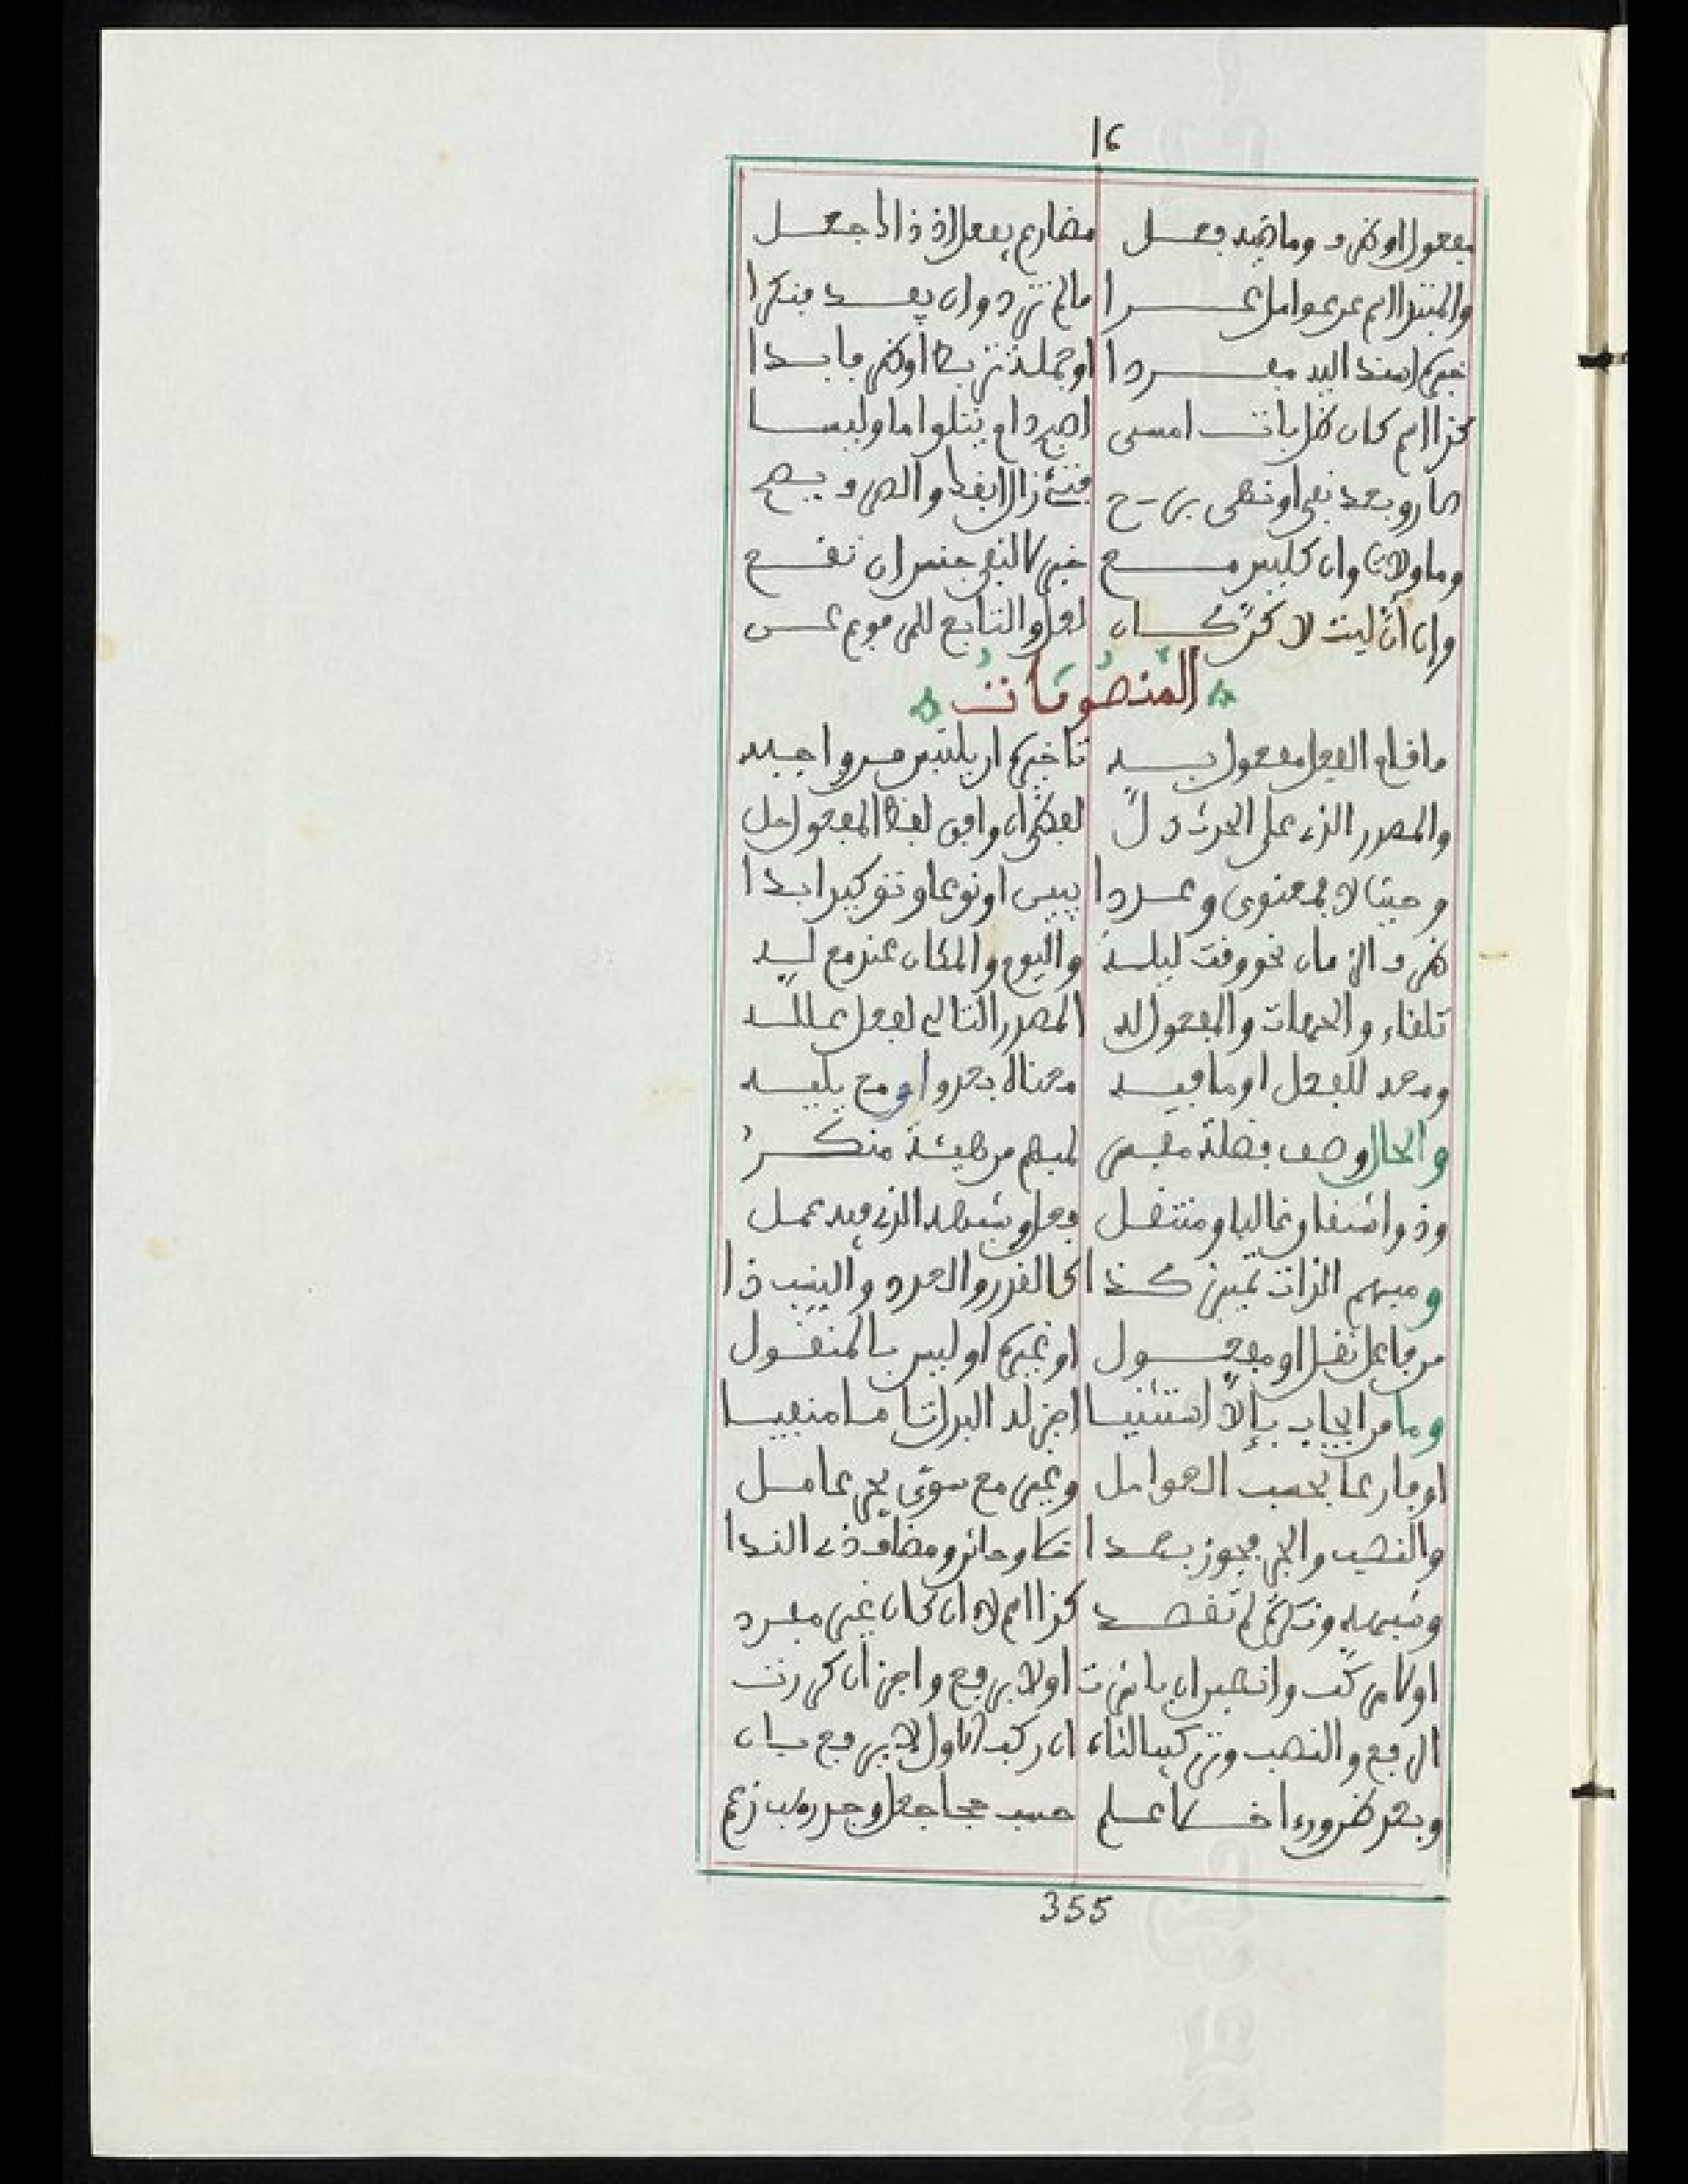 16
مفعول او ظرف وما فيه فعل مضارع بفعل اذ ذاك جعل
والمبتدا اسم عن عوامل عرا ما لم ترد وان يفد منكرا
خبره اسند اليه مفردا او جملة تربط او ظرفا بدا
كذا اسم كان ظل بات امسى اصبح دام يتلوا ما وليسا
صار وبعد نفي او نهي برح فتئ زال انفك والصرف يصح
وما ولات وان كليس مع خبر لا لنفي جنس ان تقع
وإن أنّ ليت لاكنّ كأن لعل والتابع للمرفوع عن
المنصوبات
ما قام الفعل مفعول به تاخيره ان يلتبس من واجبه
والمصدر الذي على الحدث دلّ لفظي ان وافق لفظا المفعول حل
وحيثما لا فمعنوي وعددا يبين او نوعا وتوكيدا بدا
ظرف الزمان نحو وقت ليلة واليوم والمكان عند مع له
تلقاء والجهات والمفعول له المصدر التالي لفعل علله
ومعه للفعل او ما فيه معناه بعد واو مع يلفيه
والحال وصف فضلة مفسر لمبهم من هيئة منكر
وذو اشتقاق غالبا ومنتقل فعل وشبهه الذي فيه عمل
ومبهم الذات تمييز كذا كالقدر والعدد والنسب ذا
من فاعل نقل او مفعول او غيره او ليس بالمنقول
وما من ايجاب بإلّا استثنيا اجز له البدل تاما منفيا
او فارغا بحسب العوامل وغير مع سوى بجر عامل
والنصب والجر يجوز بعدا خلا وحاش ومضاف ذي الندا
وشبهه ونكرة لم تقصد كذا اسم لا ان كان غير مفرد
اولا مركب وانصبن ان باشرت اولا يرفع واجز ان كررت
الرفع والنصب وتركيب الثان ان ركب الاول لا يرفع بان
وبعد ظن ورءا خال علم حسب حجا جعل وجد وهب زعم
355